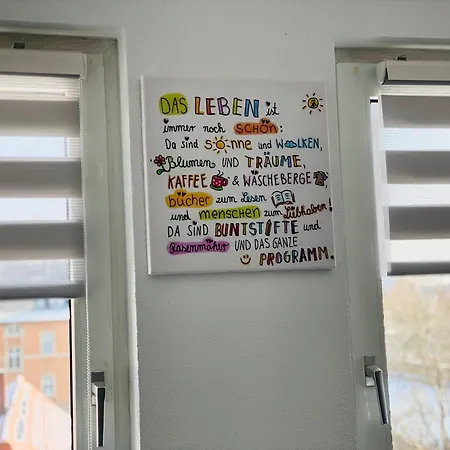 DAS LEBEN ist
immer noch SCHÖN:
Da sind SONNE und WOLKEN,
Blumen UND TRÄUME,
KAFFEE & WÄSCHEBERGE,
bücher zum Lesen
und menschen zum Liebhaben!
DA SIND BUNTSTIFTE und
Rasenmäher UND DAS GANZE
PROGRAMM.